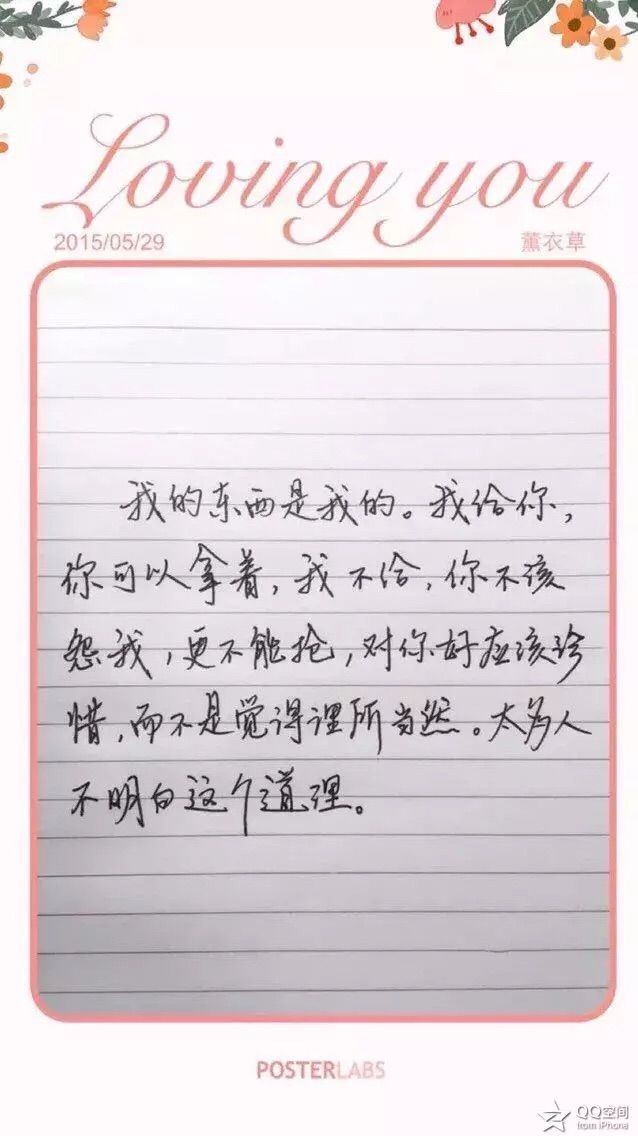 Loving you
2015/05/29
薰衣草
我的东西是我的。我给你，
你可以拿着，我不给，你不该
怨我，更不能抢，对你好应该珍
惜，而不是觉得理所当然。太多人
不明白这个道理。
POSTERLABS
QQ空间
from iPhone